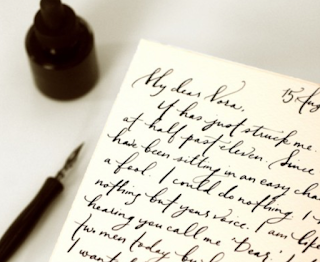 15 Aug
My dear Nora,
It has just struck me.
at half past eleven. Since
have been sitting in an easy cha
a fool. I could do nothing. I
nothing but your voice. I am like
hearing you call me 'Dear.' I
two men today by
I want to